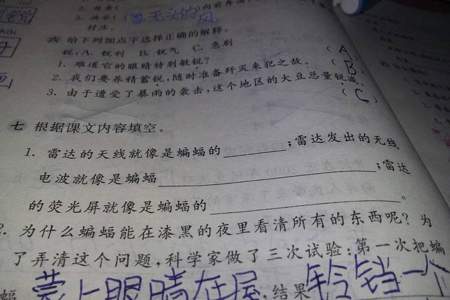 村庄。
六 给下列加点字选择正确的解释。
锐:A. 锐利 B. 锐气 C. 急剧
1. 难道它的眼睛特别敏锐? (A)
2. 我们要养精蓄锐,随时准备歼灭来犯之敌。 (B)
3. 由于遭受了暴雨的袭击,这个地区的大豆总量锐减。 (C)
七 根据课文内容填空。
1. 雷达的天线就像是蝙蝠的________;雷达发出的无线
电波就像是蝙蝠________________;雷达
的荧光屏就像是蝙蝠的________________。
2. 为什么蝙蝠能在漆黑的夜里看清所有的东西呢? 为
了弄清这个问题,科学家做了三次试验:第一次把蝙
蝠 蒙上眼睛在屋,结果 铃铛一个